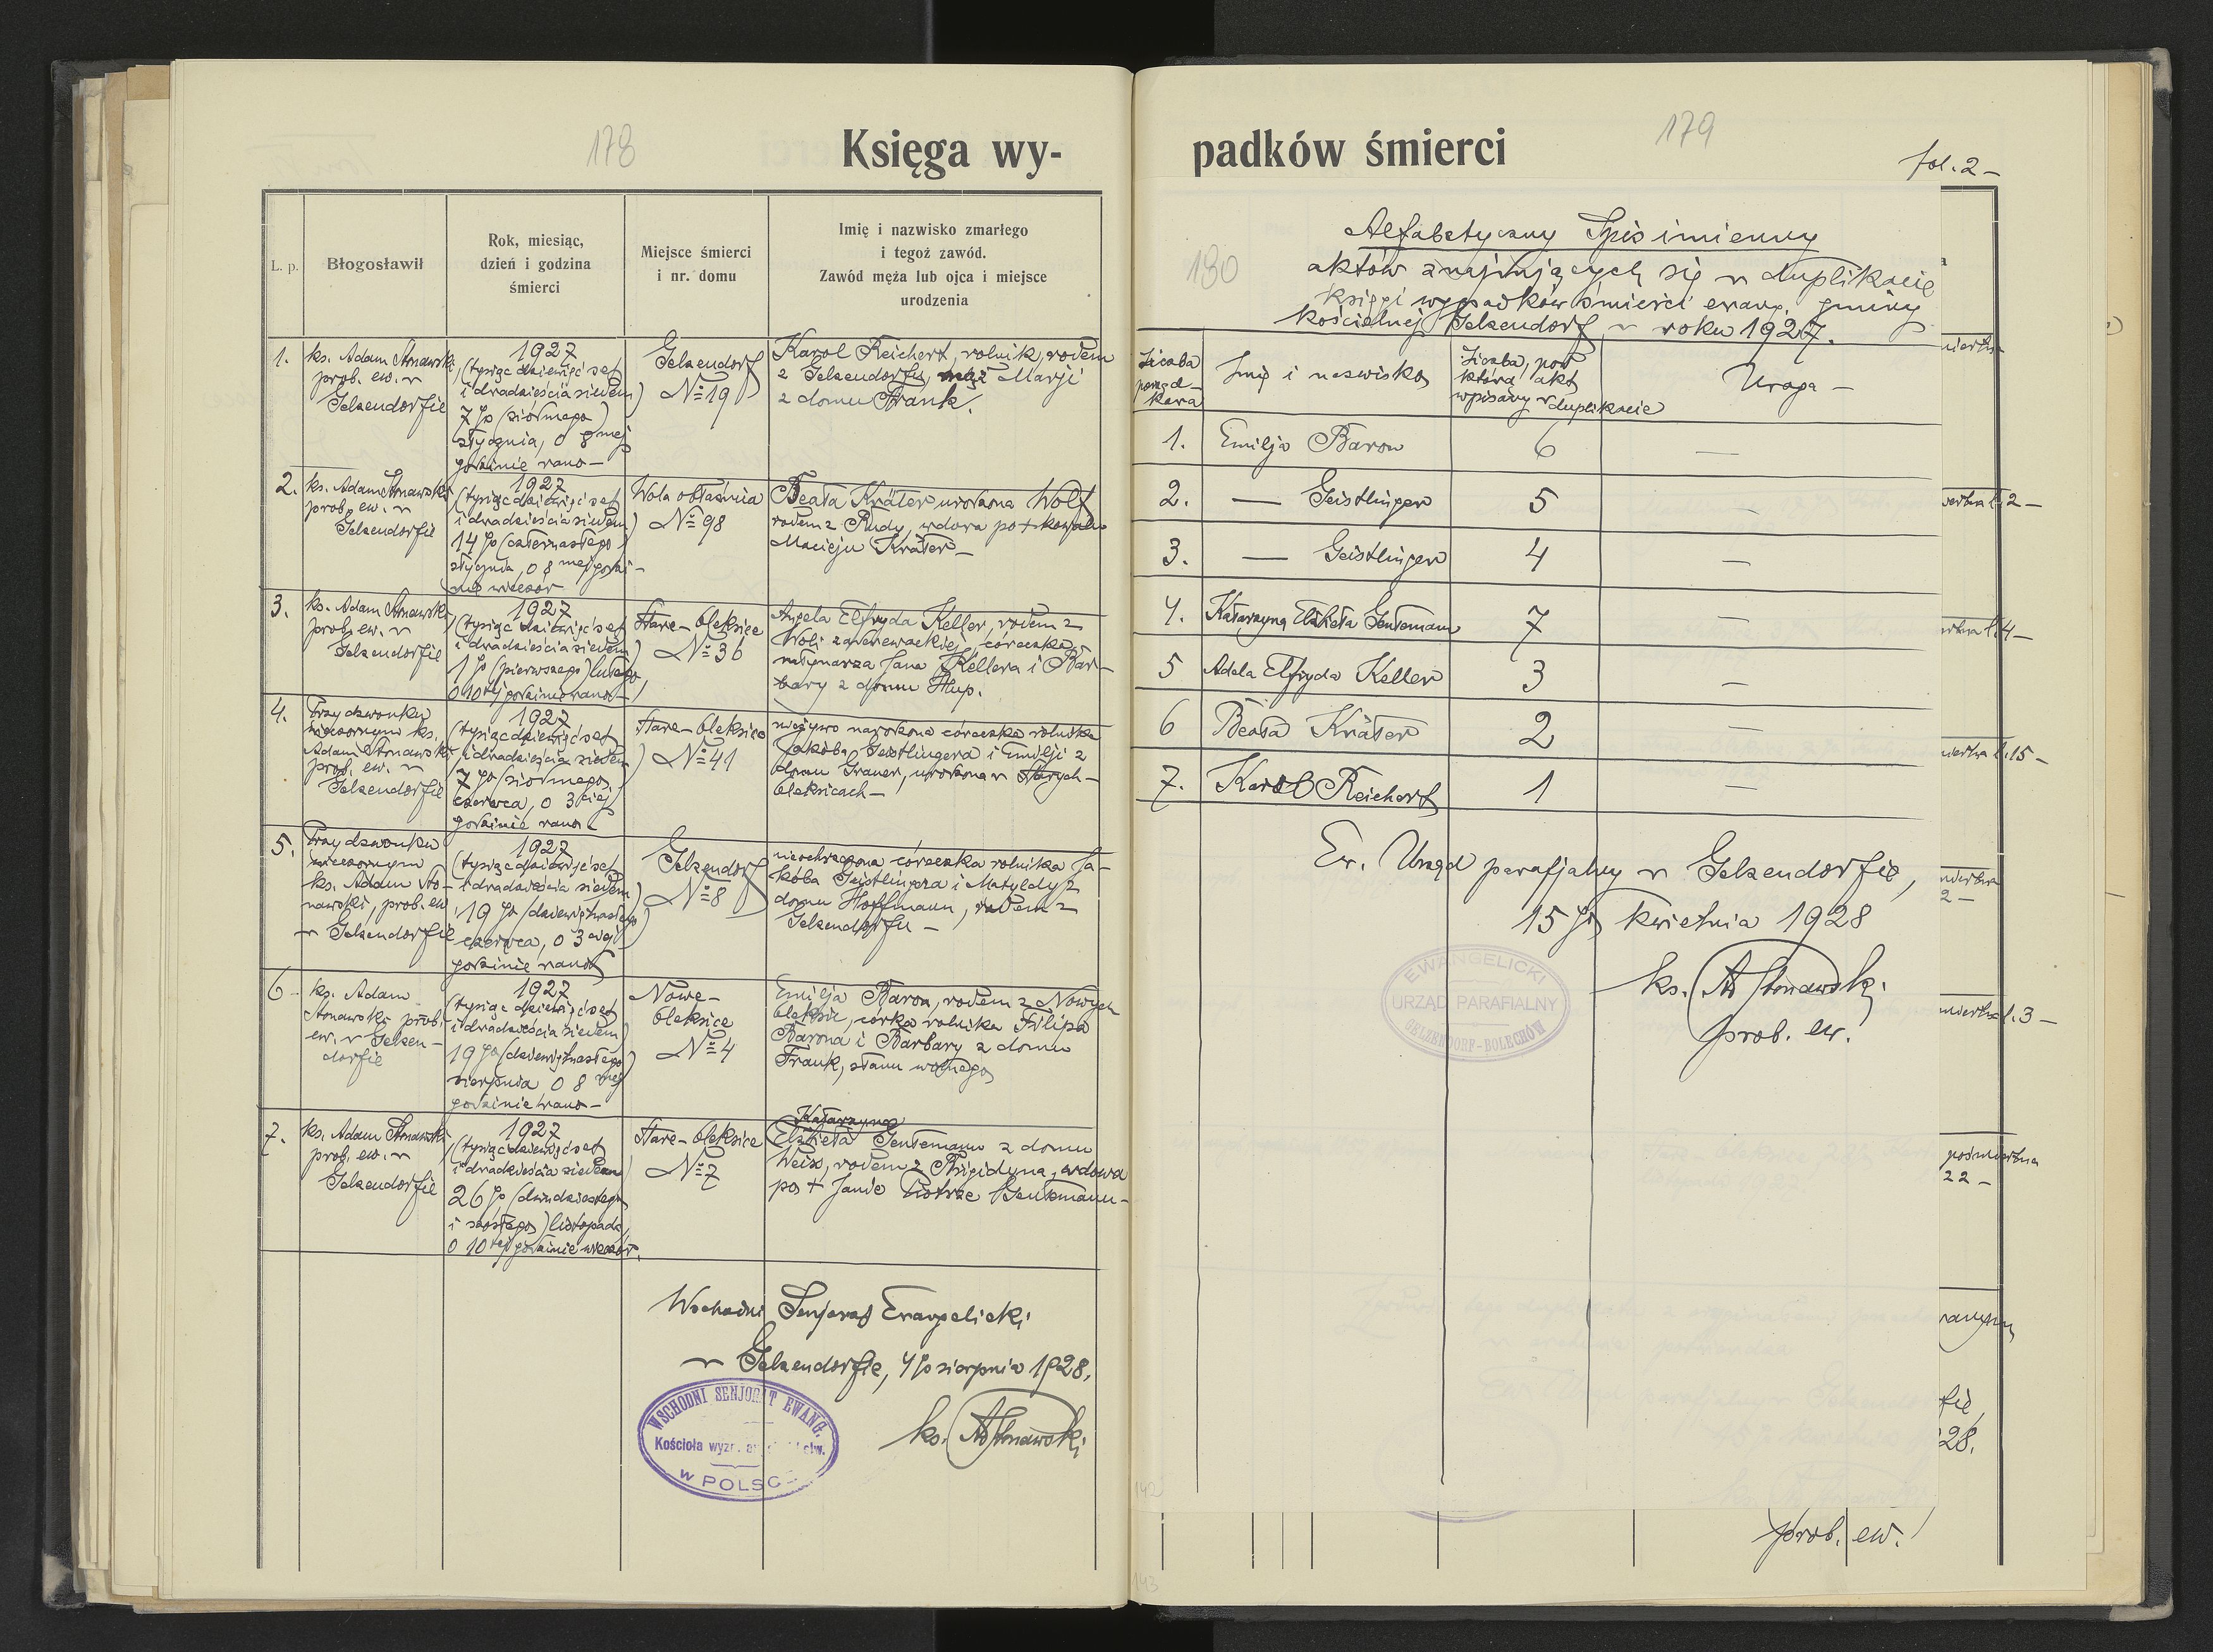 178
Księga wy-
L. p.
Błogosławił
Rok, miesiąc,
dzień i godzina
śmierci
Miejsce śmierci
i nr. domu
Imię i nazwisko zmarłego
i tegoż zawód.
Zawód męża lub ojca i miejsce
urodzenia
1.
ks. Adam Stonawski
prob. ew. w
Gelsendorfie
1927
(tysiąc dziewięćset
i dwadzieścia siedem)
7go (siódmego)
stycznia, o 8mej
godzinie rano —
Gelsendorf
№ 19
Karol Reichert, rolnik, rodem
z Gelsendorfu, mąż Marji
z domu Frank.
2.
ks. Adam Stonawski
prob. ew. w
Gelsendorfie
1927
(tysiąc dziewięćset
i dwadzieścia siedem)
14go (czternastego)
stycznia, o 8mej godzi-
nie wieczór
Wola obłaźnica
№ 98
Beata Kräter urodzona Wolf
rodem z Rudy, wdowa po + kowalu
Macieju Kräter —
3.
ks. Adam Stonawski
prob. ew. w
Gelsendorfie
1927
(tysiąc dziewięćset
i dwadzieścia siedem)
1go (pierwszego) lutego,
o 10tej godzinie rano —
Stare-Oleksice
№ 36
Elfryda Keller, rodem z
Woli zaderewackiej, córeczka
młynarza Jana Kellera i Bar-
bary z domu Hup.
4.
Przy dzwonku
wieczornym ks.
Adam Stonawski,
prob. ew. w
Gelsendorfie
1927
(tysiąc dziewięćset
i dwadzieścia siedem)
7go (siódmego)
czerwca, o 3ciej
godzinie rano —
Stare-Oleksice
№ 41
nieżywo narodzona córeczka rolnika
Jakóba Geistlingera i Emilji z
domu Grauer, urodzona w Starych-
Oleksicach —
5.
Przy dzwonku
wieczornym
ks. Adam Sto-
nawski, prob. ew.
w Gelsendorfie
1927
(tysiąc dziewięćset
i dwadzieścia siedem)
19go (dziewiętnastego)
czerwca, o 3ciej
godzinie rano
Gelsendorf
№ 8
nieochrzczona córeczka rolnika Ja-
kóba Geistlingra i Matyldy z
domu Hoffmann, rodem z
Gelsendorfu —
6 -
ks. Adam
Stonawski prob.
ew. w Gelsen-
dorfie
1927
(tysiąc dziewięćset
i dwadzieścia siedem)
19go (dziewiętnastego)
sierpnia o 8mej
godzinie rano —
Nowe-
Oleksice
№ 4
Emilja Baron, rodem z Nowych
Oleksic, córka rolnika Filipa
Barona i Barbary z domu
Frank, stanu wolnego
7.
ks. Adam Stonawski
prob. ew. w
Gelsendorfie
1927
(tysiąc dziewięćset
i dwadzieścia siedem)
26go (dwudziestego
i szóstego) listopada,
o 10tej godzinie wieczór.
Stare-Oleksice
№ 7
Katarzyna
Elżbieta Gentemann z domu
Weiss, rodem z Brigidyna, wdowa
po + Janie Piotrze Gentemann —
Wschodni Senjorat Ewangelicki
w Gelsendorfie, 4go sierpnia 1928.
WSCHODNI SENJORAT EWANG.
Kościoła wyzn.
W POLSCE
ks. A Stonawski
padków śmierci
179
fol. 2 —
180
Alfabetyczny Spis imienny
aktów znajdujących się w duplikacie
księgi wypadków śmierci ewang. gminy
kościelnej Gelsendorf w roku 1927.
Liczba
porząd-
kowa
Imię i nazwisko
Liczba, pod
którą akt
wpisany w duplikacie
Uwaga —
1. Emilja Baron 6 —
2. — Geistlinger 5 —
3. — Geistlinger 4 —
4. Katarzyna Elżbieta Gentemann 7 —
5 Adela Elfryda Keller 3 —
6 Beata Kräter 2 —
7. Karol Reichert 1 —
Ew. Urząd parafjalny w Gelsendorfie,
15go kwietnia 1928
EWANGELICKI
URZĄD PARAFIALNY
GELZENDORF-BOLECHÓW
ks. A Stonawski
prob. ew.
l. 2 —
l. 4 —
l. 15 —
2 —
l. 3 —
pośmiertna
22 —
fie,
28.
prob. ew.
142
143